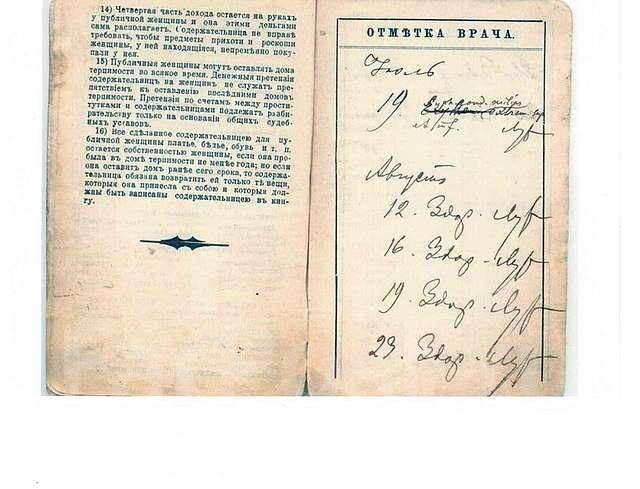 14) Четвертая часть дохода остается на рукахъ
у публичной женщины и она этими деньгами
сама располагаетъ. Содержательница не вправѣ
требовать, чтобы предметы прихоти и роскоши
женщины, у ней находящіяся, непремѣнно поку-
пали у нея.
15) Публичныя женщины могутъ оставлять дома
терпимости во всякое время. Денежныя претензіи
содержательницъ на женщинъ не служатъ пре-
пятствіемъ къ оставленію послѣдними домовъ
терпимости. Претензіи по счетамъ между прости-
тутками и содержательницами подлежатъ разби-
рательству только на основаніи общихъ судеб-
ныхъ уставовъ.
16) Все сдѣланное содержательницею для пу-
бличной женщины платье, бѣлье, обувь и т. п.
остается собственностью женщины, если она про-
была въ домѣ терпимости не менѣе года; но если
она оставитъ домъ ранѣе сего срока, то содержа-
тельница обязана возвратить ей только тѣ вещи,
которыя она принесла съ собою и которыя дол-
жны быть записаны содержательницею въ кни-
гу.
ОТМѢТКА ВРАЧА.
Іюль
19.
Августъ
12. Здор.
16. Здор.
19. Здор.
23. Здор.